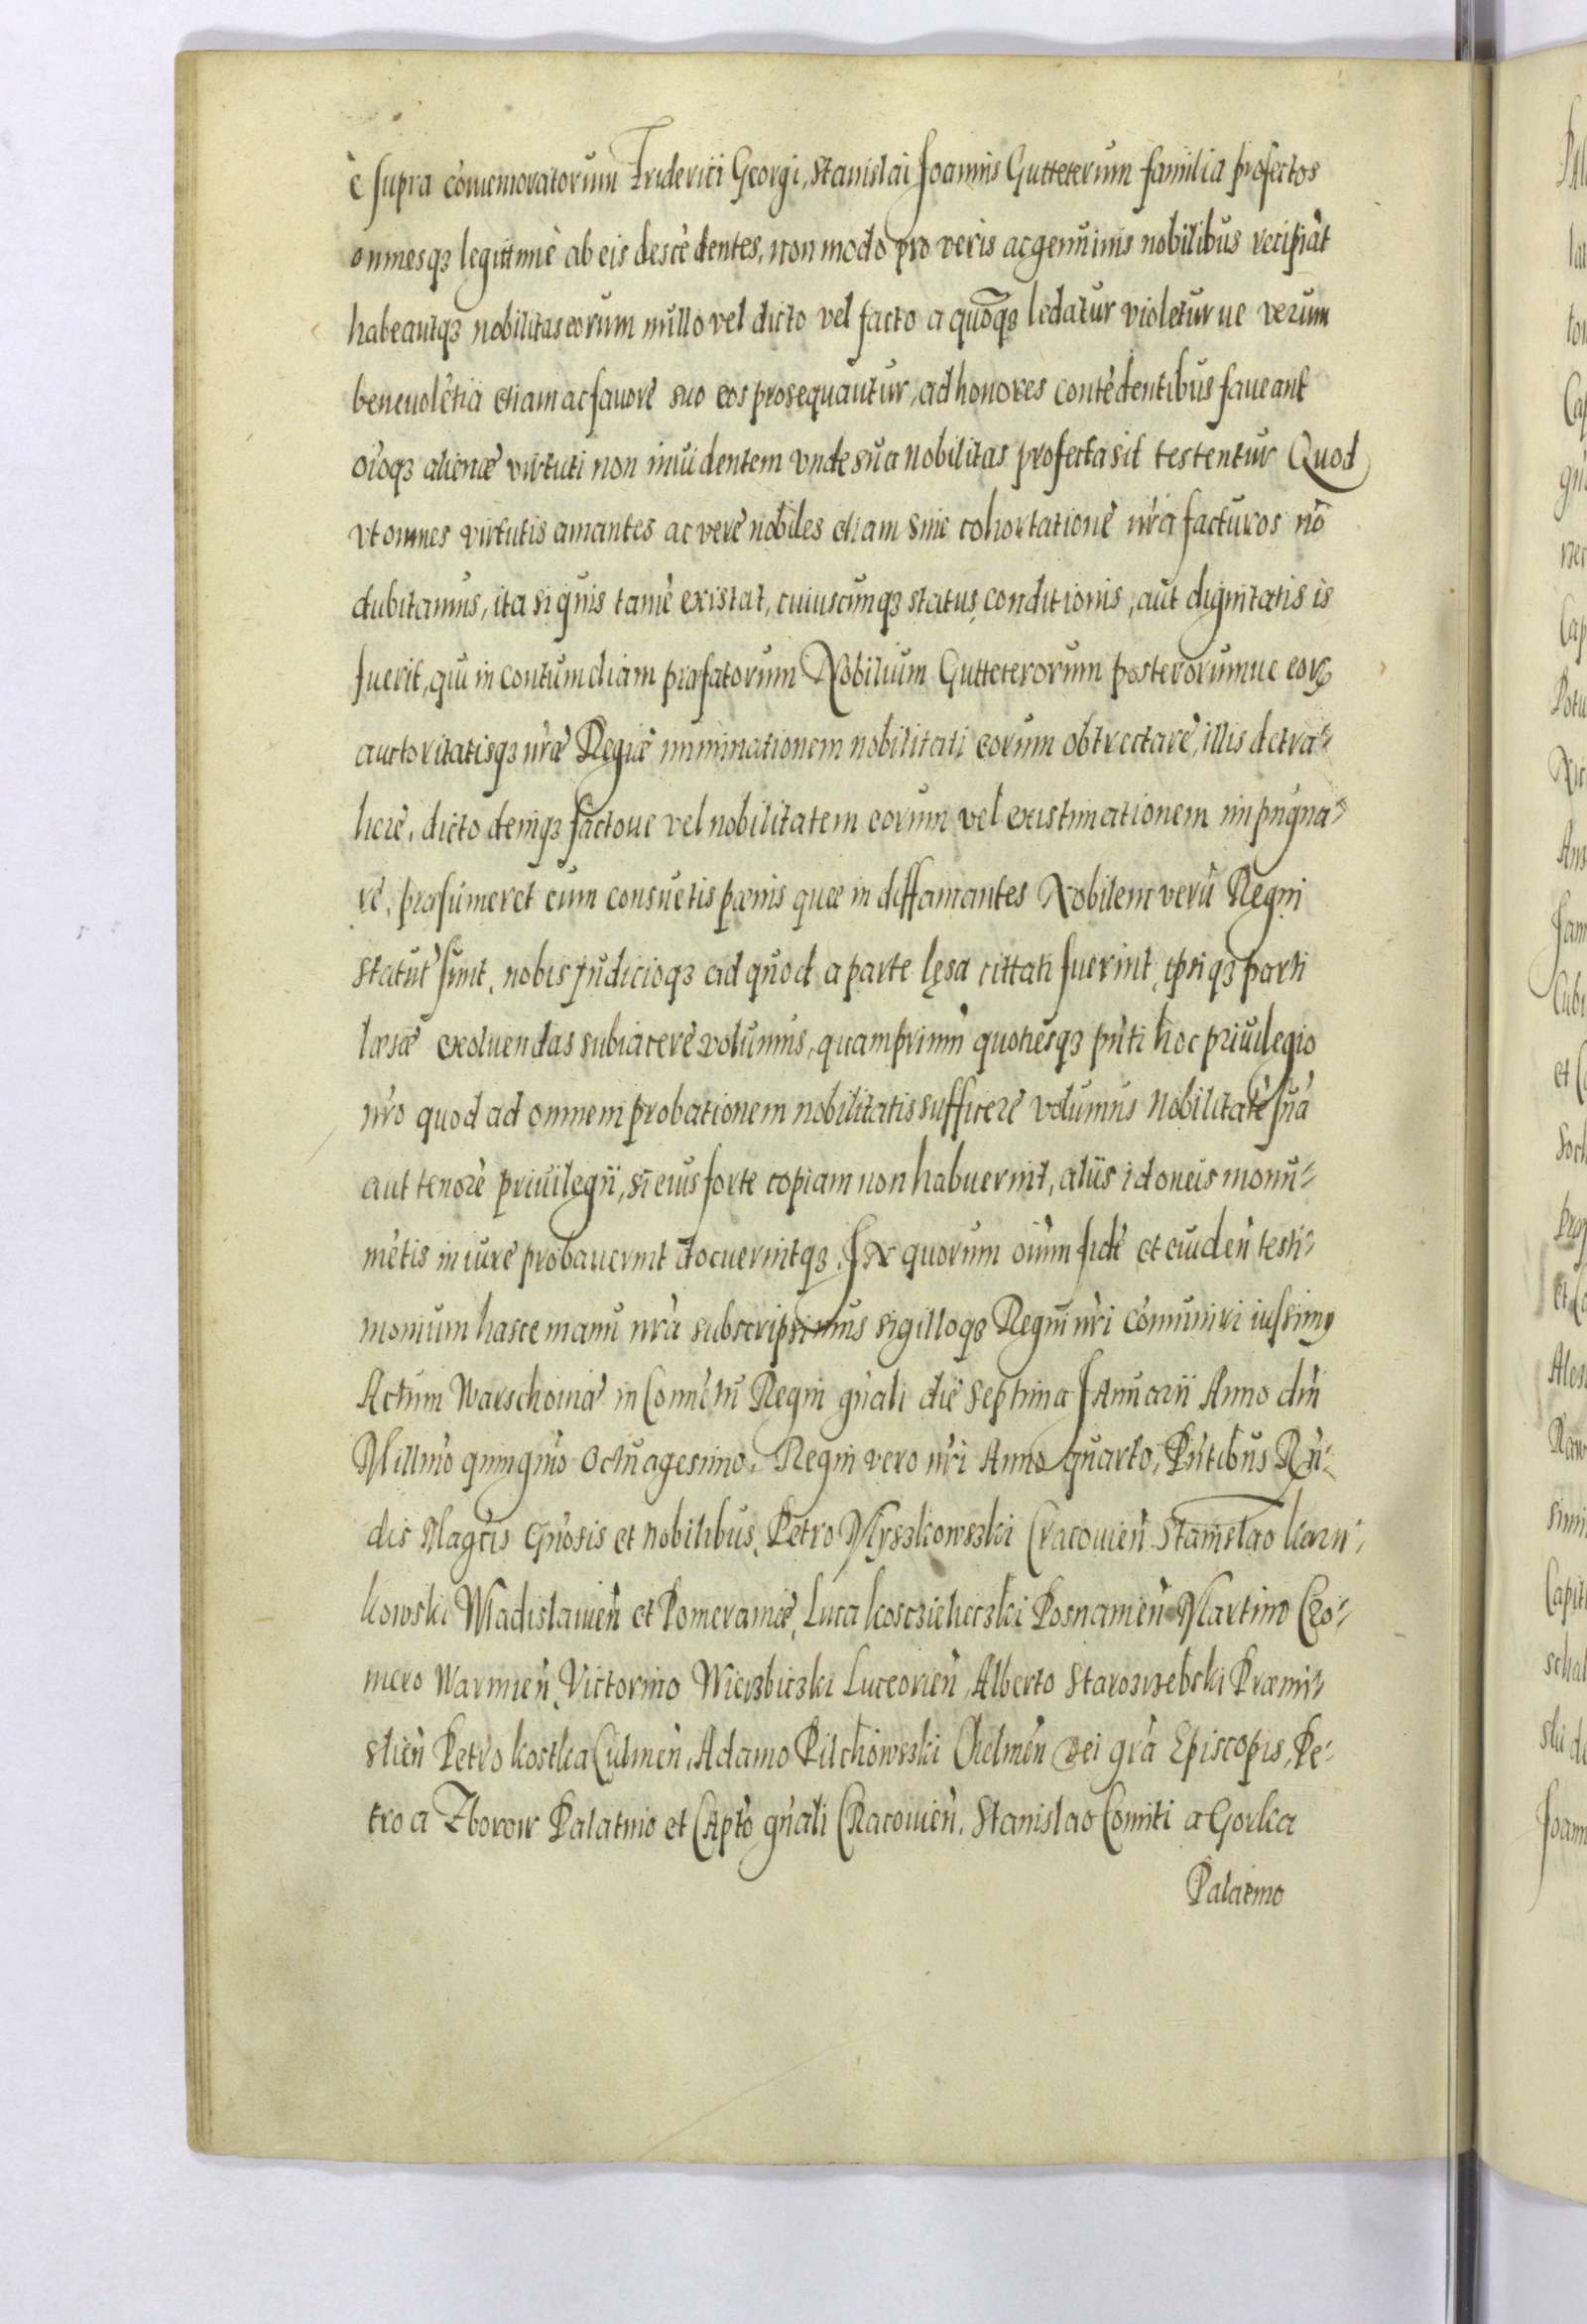 è supra cōmemoratorum Friderici Georgi, Stanislai Joannis Gutteterum familia profectos
omnesqȝ legittimè ab eis descēdentes, non modo pro veris ac genuinis nobilibus recipiāt
habeantqȝ nobilitas eorum nullo vel dicto vel facto a quoqȝ ledatur violeturue verum
beneuolētia etiam ac fauorē suo eos prosequantur, ad honores contēdentibus faueant
oīoqȝ alienæ virtuti non inuidentem vnde sua nobilitas profecta sit testentur Quod
vt omnes virtutis amantes ac verè nobiles etiam sine cohortationē nrā facturos nō
dubitamus, ita si quis tamē existat, cuiuscunqȝ status, conditionis, aut dignitatis is
fuerit, qui in contumeliam præfatorum Nobilium Gutteterorum posterorumue eorꝝ
auctoritatisqȝ nræ Regiæ imminationem nobilitati eorum obtrectarē, illis detra=
herē, dicto deniqȝ factoue vel nobilitatem eorum vel existimationem impugna=
rē, præsumeret eum consuetis pænis quæ in diffamantes Nobilem verū Regni
statut sunt, nobis judicioqȝ ad quod a parte lęsa cittati fuerint, ipsiqȝ parti
læsæ exoluendas subiacerē volumus, quamprimū quotiesqȝ pn̄ti hoc priuilegio
nr̄o quod ad omnem probationem nobilitatis sufficerē volumus Nobilitatē suā
aut tenorē priuilegii, si eius forte copiam non habuerint, aliis idoneis monu=
mētis in iurē probauerint docuerintqȝ. In quorum oīum fidē et euiden̄ testi=
monium hasce manu nrā subscripsimus sigilloqȝ Regni nr̄i cōmuniri iussimꝰ
Actum Warschouiæ in Conuētu Regni gn̄ali die Septima Januarii Anno dn̄i
Millm̄o quingm̄o Octuagesimo. Regni vero nr̄i Anno quarto, Pn̄tibus Rn̄=
dis Magcis Gn̄osis et Nobilibus, Petro Myszkowszki Cracouien̄ Stanislao Karn=
kowski Wladislauien̄ et Pomeraniæ, Luca kosczieleczki Posnanien̄ Martino Cro=
mero Warmien̄, Victorino Wierzbiczki Luceorien̄, Alberto Starozrzebski Præmi=
slien̄ Petro kostka Culmen̄, Adamo Pilchowszki Chelmen̄ Dei grā Episcopis, Pe=
tro a Zborow Palatino et Captō gn̄ali Cracouien̄. Stanislao Comiti a Gorka
Palatino